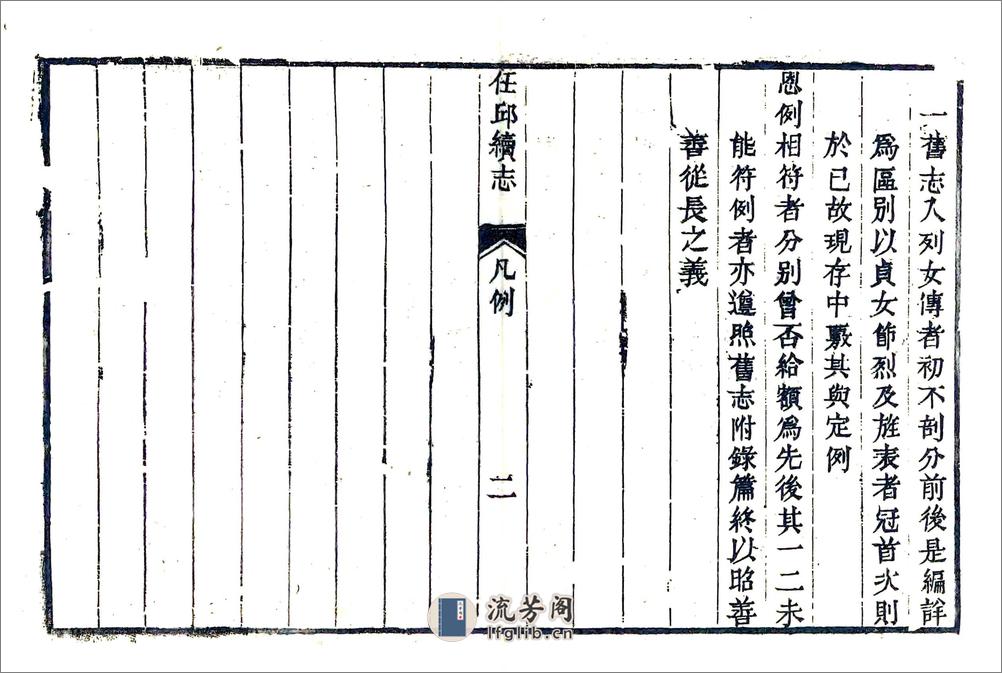 一舊志入列女傳者初不剖分前後是編詳
爲區別以貞女節烈及旌表者冠首次則
於已故現存中覈其與定例
恩例相符者分別曾否給額爲先後其一二未
能符例者亦遵照舊志附錄篇終以昭善
善從長之義
任邱續志
凡例
二
流芳阁
lfglib.cn